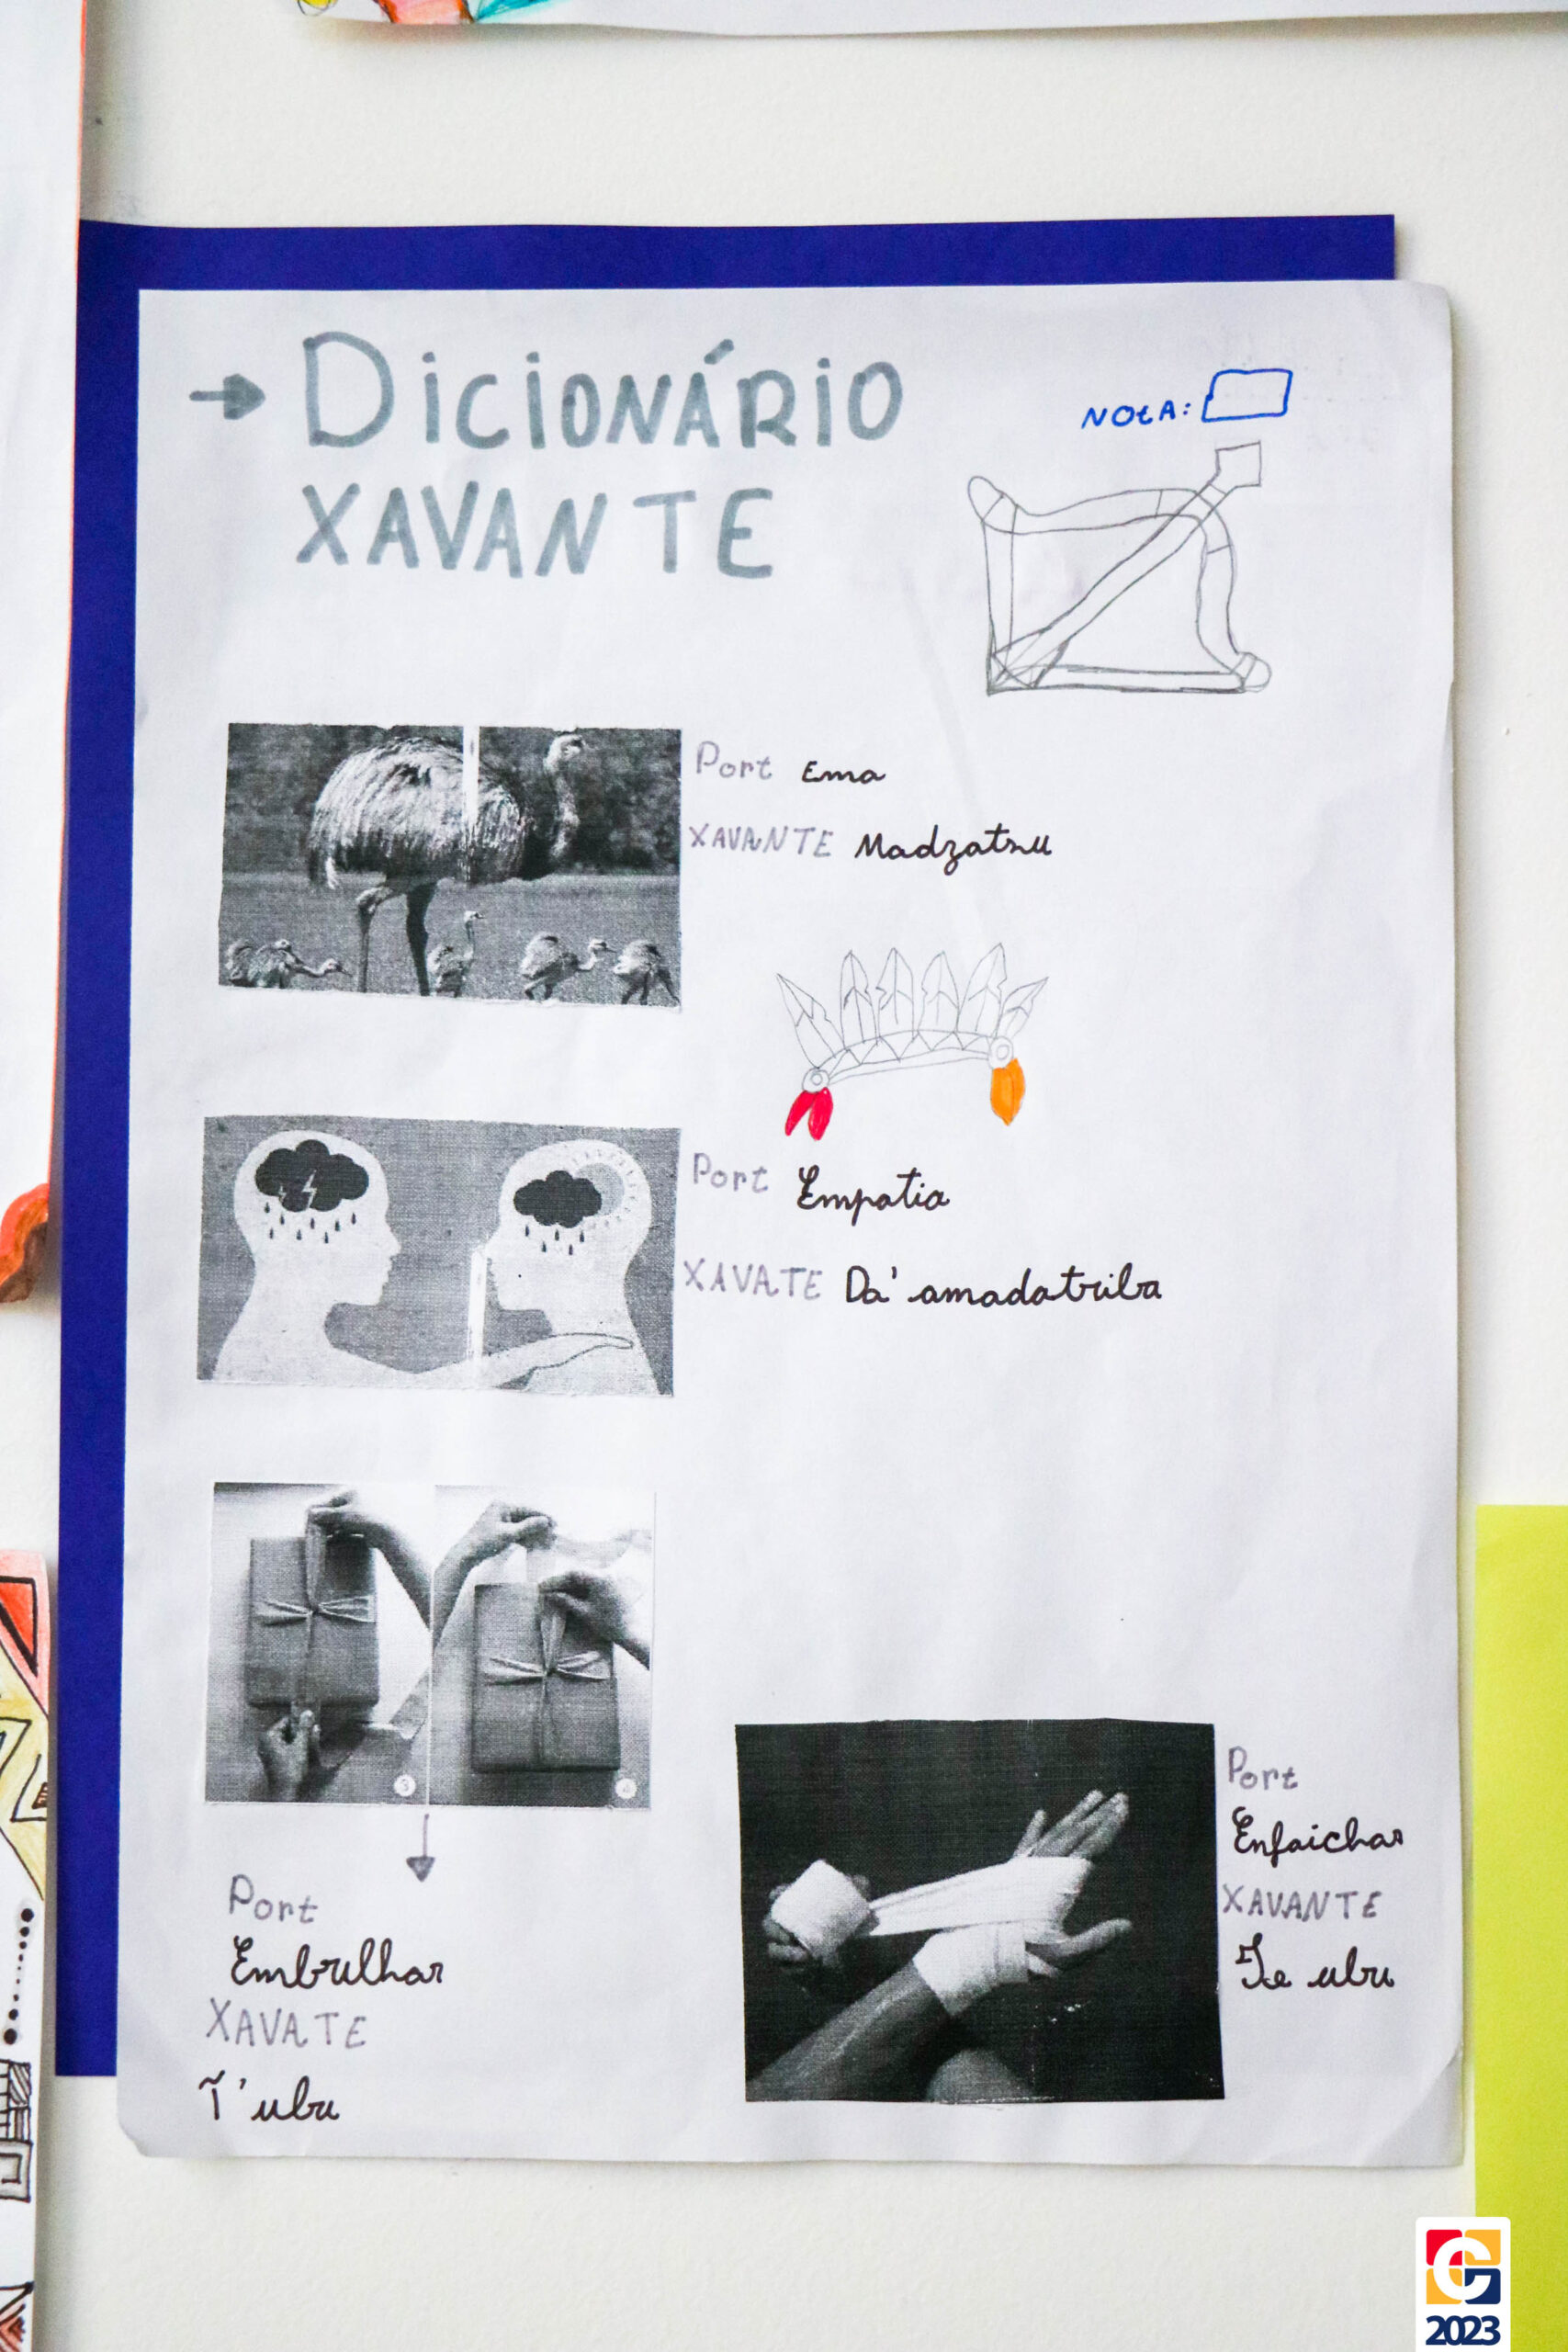 → DICIONÁRIO
XAVANTE
NOtA:
Port Ema
XAVANTE Madzatsu
Port Empatia
XAVATE Da'amadatriba
3
4
Port
Embrulhar
XAVATE
Ĩ'ubu
Port
Enfaichar
XAVANTE
Te ubu
2023